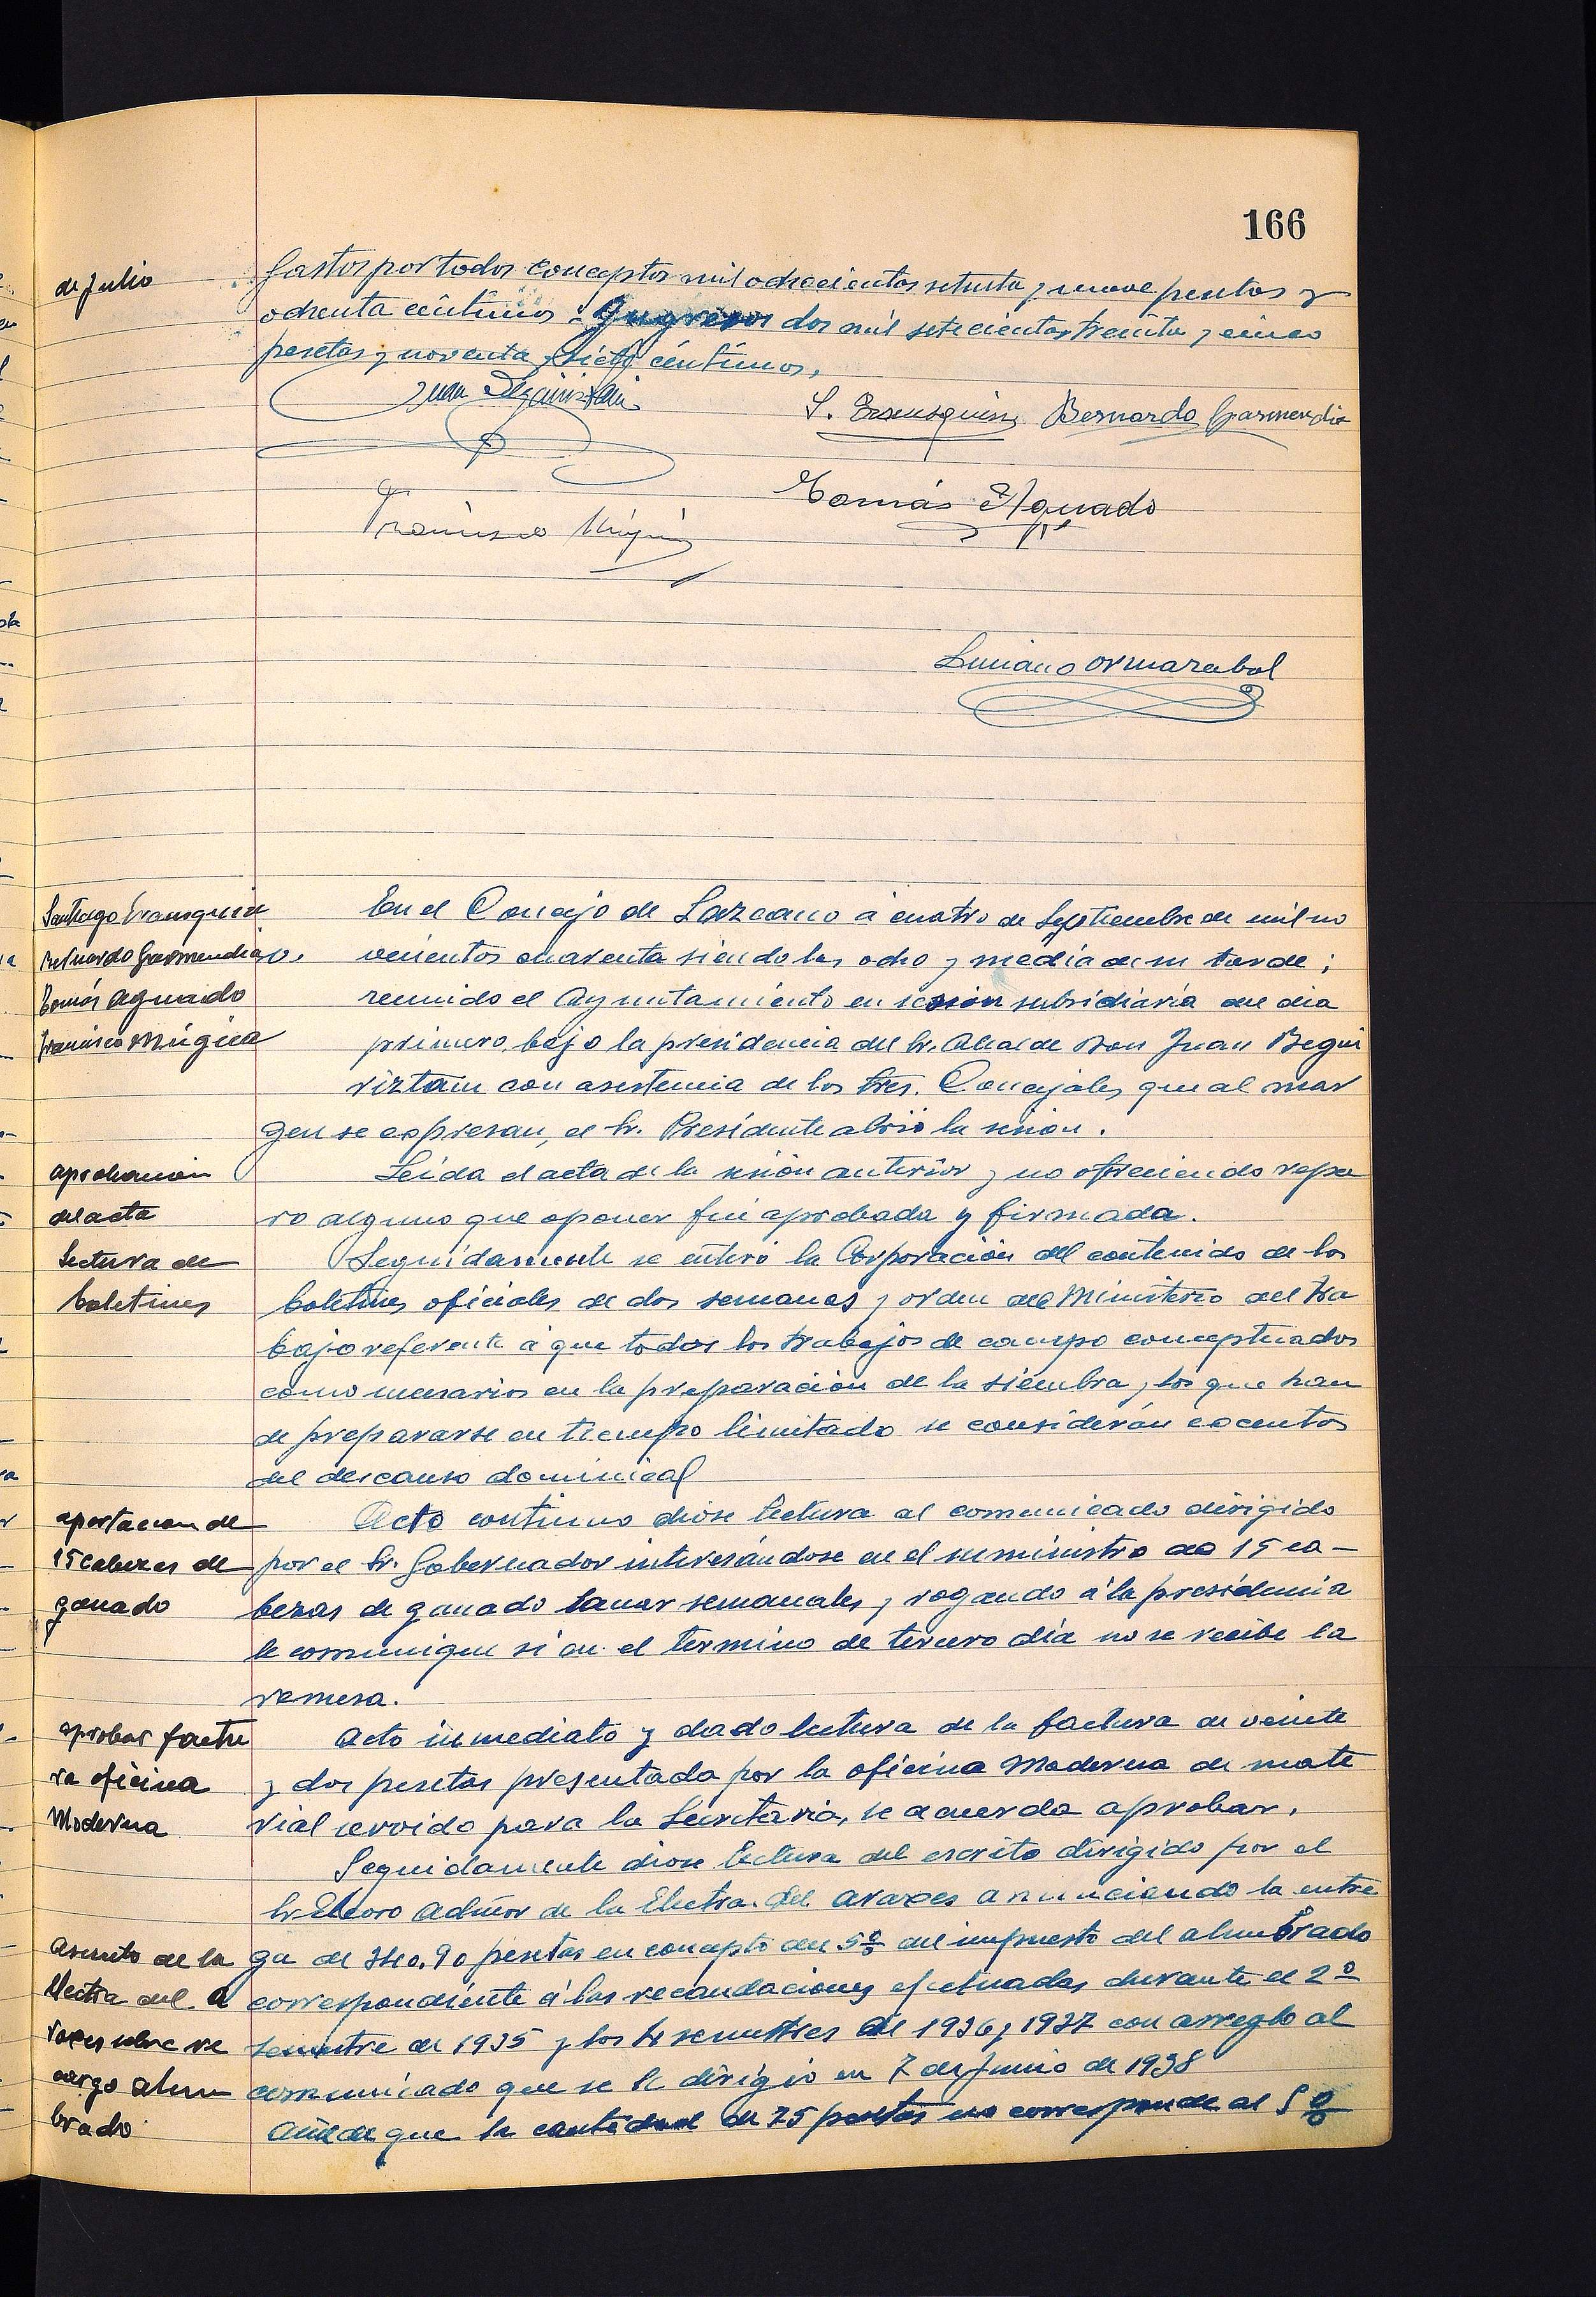 166
de Julio
Gastos por todos conceptos mil ochocientos setenta y nueve pesetas y
ochenta céntimos = Yngresos dos mil setecientas treinta y cinco
pesetas y noventa y siete céntimos.
Juan
S. Bernardo Garmendia
Tomás Aguado
Francisco Múgica
Luciano Ormazabal
Santiago
Bernardo Garmendia
Tomás Aguado
Francisco Múgica
En el Concejo de Lazcano a cuatro de Septiembre de mil no
vecientos cuarenta siendo las ocho y media de su tarde;
reunido el Ayuntamiento en sesión subsidiaria del dia
primero, bajo la presidencia del Sr. Alcalde Don Juan Begui
riztain con asistencia de los Sres. Concejales que al mar
gen se expresan, el Sr. Presidente abrió la sesión.
aprobación
del acta
Leida el acta de la sesión anterior y no ofreciendo repa
ro alguno que oponer fué aprobada y firmada.
Lectura de
boletines
Seguidamente se enteró la Corporación del contenido de los
boletines oficiales de dos semanas y orden del Ministerio del Tra
bajo referente á que todos los trabajos de campo conceptuados
como necesarios en la preparación de la siembra y los que han
de prepararse en tiempo limitado se considerán excentos
del descanso dominical
aportacion de
15 cabezas de
ganado
Acto continuo dióse lectura al comunicado dirigido
por el Sr. Gobernador interesándose en el suministro de 15 ca-
bezas de ganado lanar semanales y rogando á la presidencia
le comunique si en el termino de tercero día no se recibe la
remesa.
aprobar factu
ra oficina
Moderna
Acto inmediato y dado lectura de la factura de veinte
y dos pesetas presentada por la oficina Moderna de mate
rial servido para la Secretaria, se acuerda aprobar.
Seguidamente dióse lectura del escrito dirigido por el
Sr. Admor de la Electra del Araxes anunciando la entre
asunto de la
Electra del A
raxes sobre re
cargo alum
brado.
ga de 340,90 pesetas en concepto del 5% del impuesto del alumbrado
correspondiente á las recaudaciones efectuadas durante el 2º
semestre de 1935 y los 4 semestres de 1936 y 1937 con arreglo al
comunicado que se le dirigió en 7 de Junio de 1938
Añade que la cantidad de 75 pesetas no corresponde al 5%